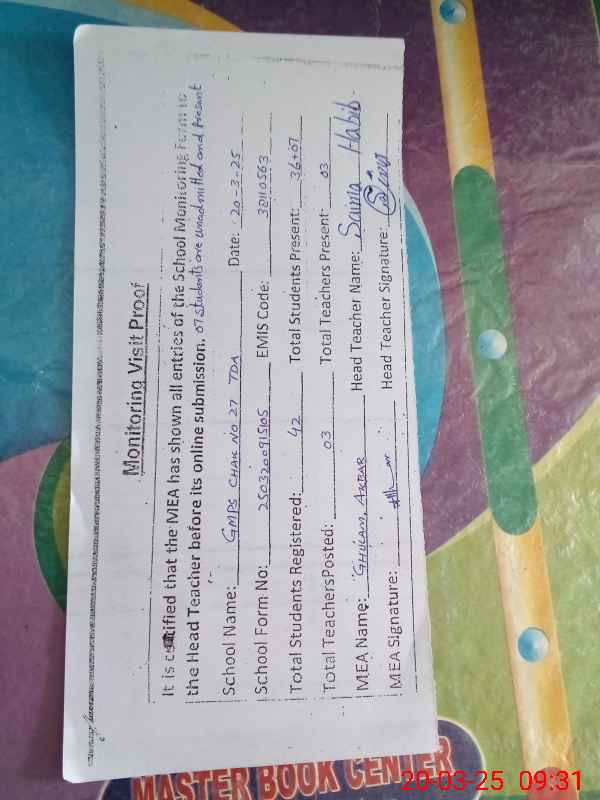 Monitoring Visit Proof
It is certified that the MEA has shown all entries of the School Monitoring Form to
the Head Teacher before its online submission. 07 students are unadmitted and Present
School Name: GMPS CHAK NO 27 TDA Date: 20-3-25
School Form No: 2503200915105 EMIS Code: 32110563
Total Students Registered: 42 Total Students Present: 36+07
Total TeachersPosted: 03 Total Teachers Present: 03
MEA Name: GHULAM, AKBAR Head Teacher Name: Saima Habib
MEA Signature: Head Teacher Signature:
MASTER BOOK CENTER
20-03-25 09:31